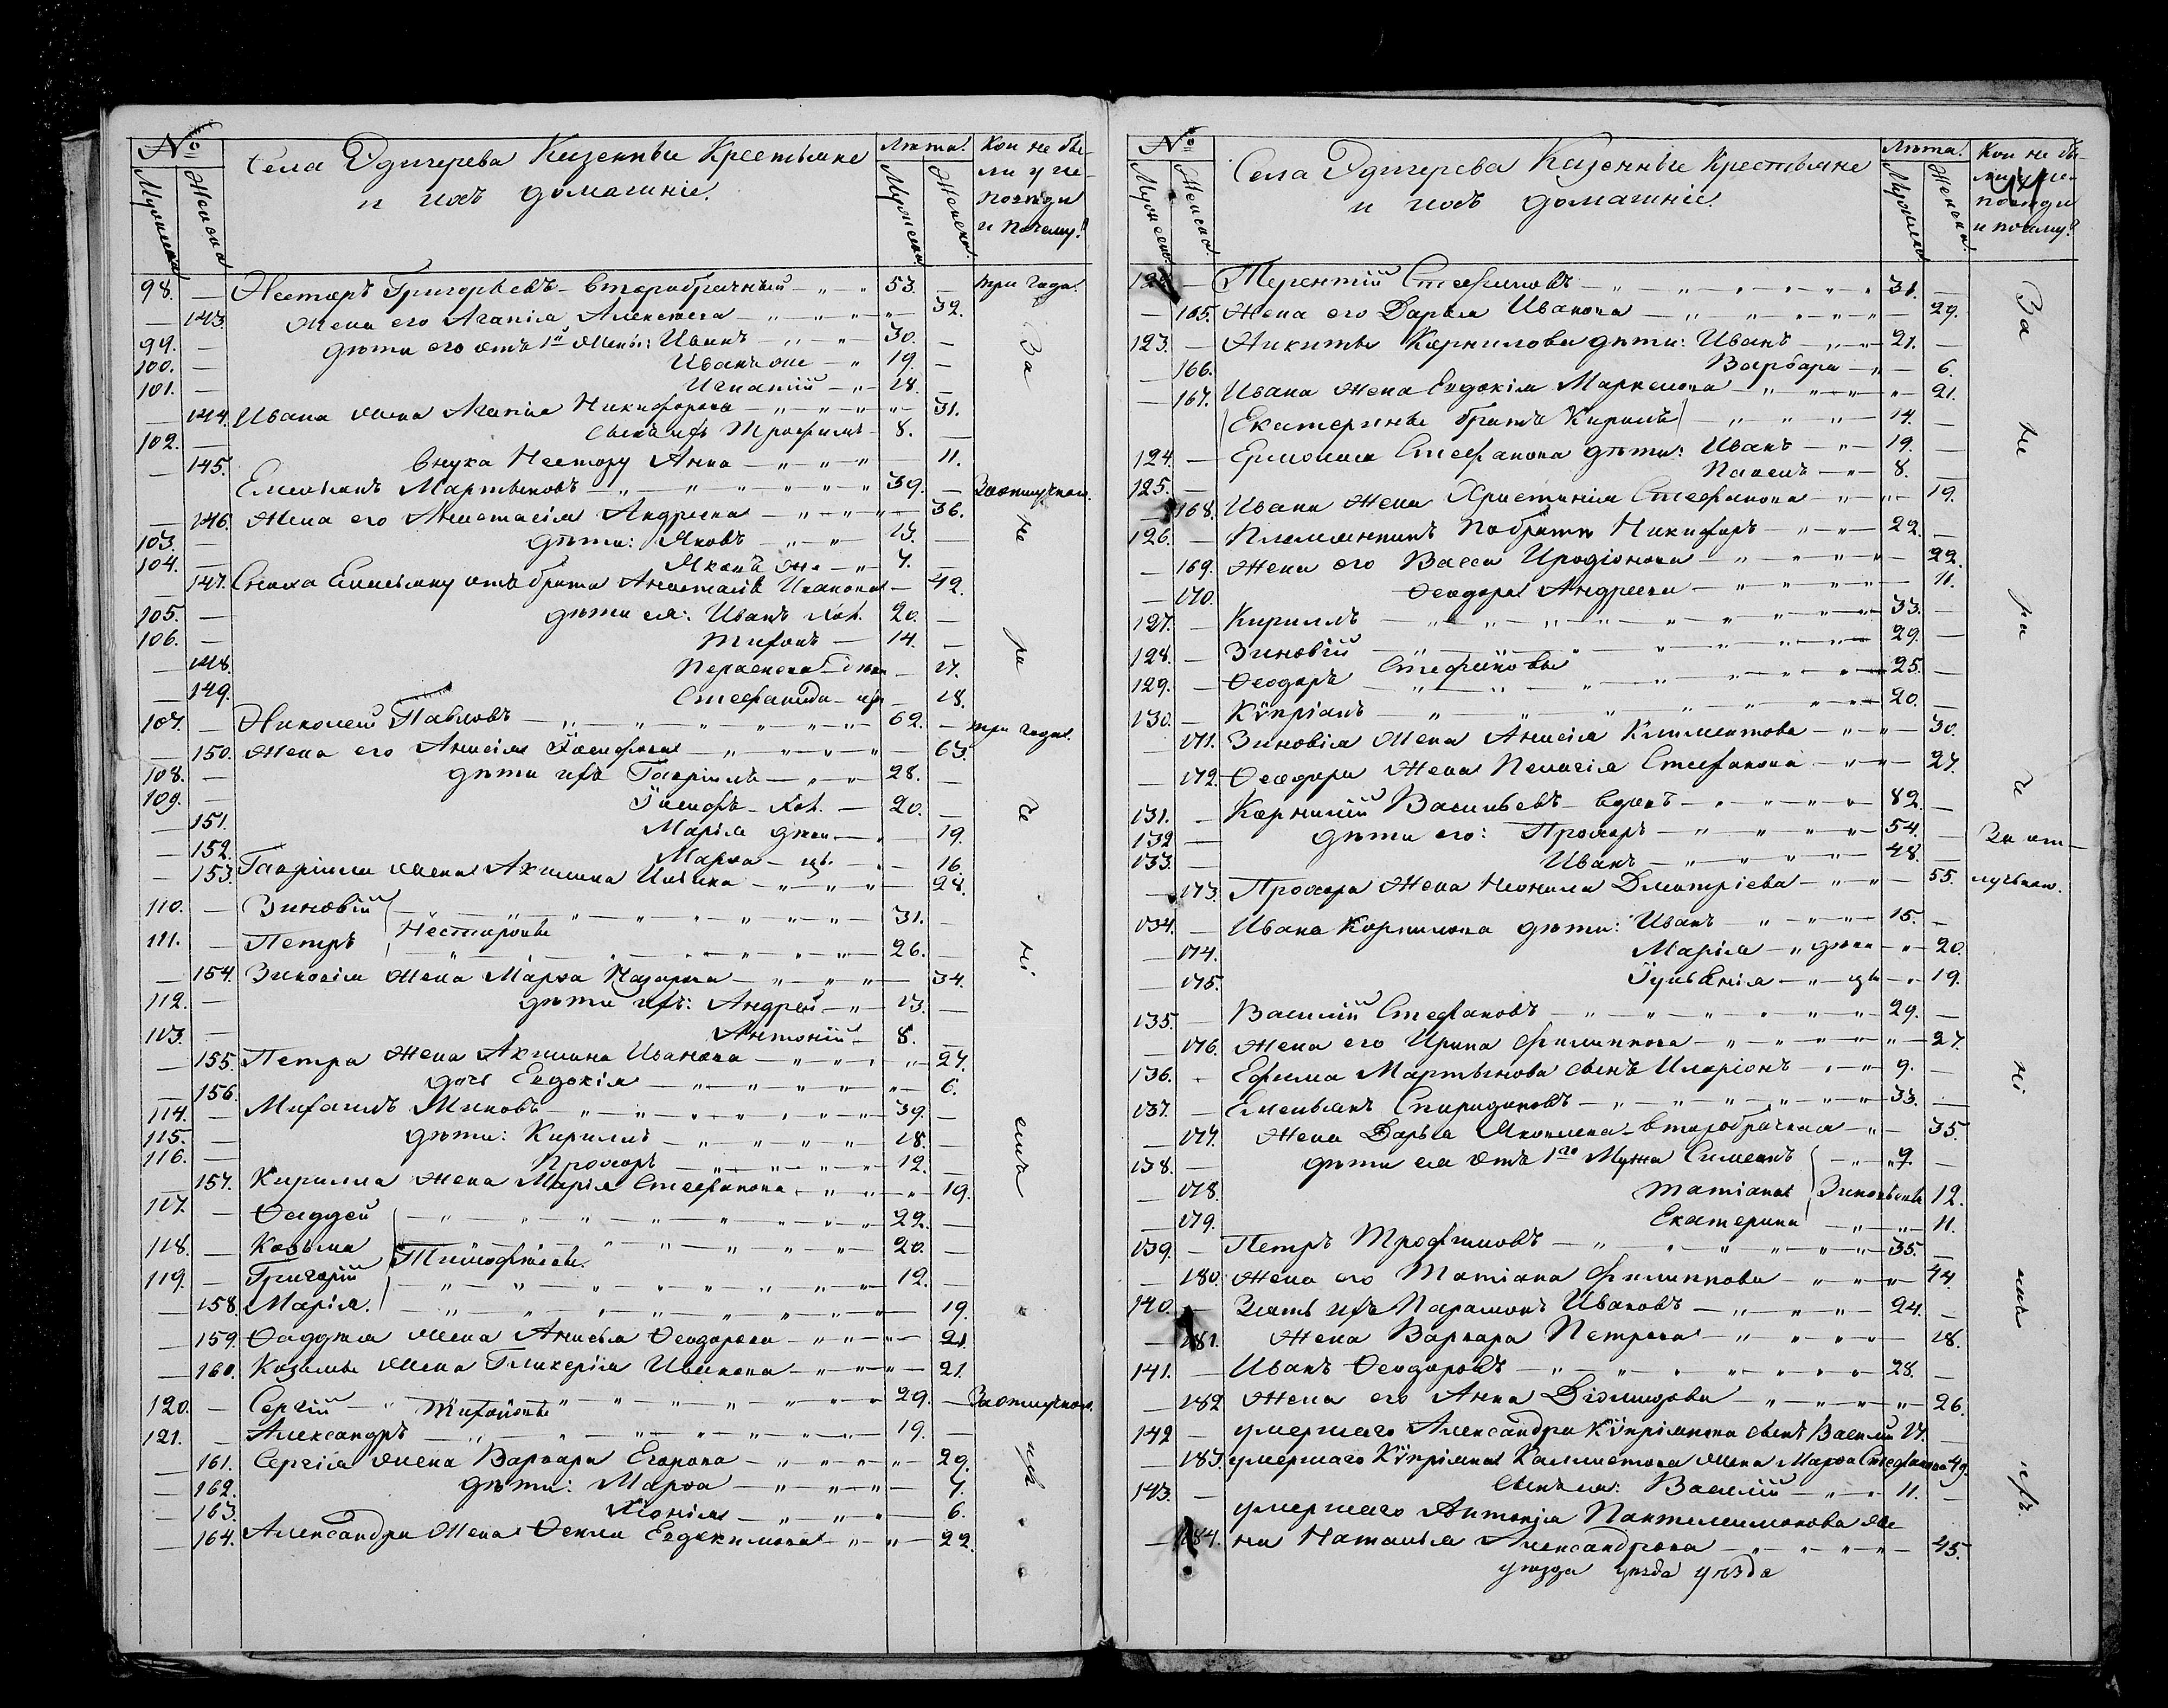 № Лѣта. Кои не бы-
Села Эдигерева Казенные Крестьяне ли у ис-
и ихъ домашніе. повѣди
Мужеска Женска Мужеска Женска и почему?
98. — Несторъ Григорьевъ - второбрачный — 53. — три года.
— 143. Жена его Агапія Алексѣева — 32.
99. — дѣти его отъ 1й жены: Иванъ — 30. —
100. — Иванъ же — 19. —
101. — Игнатій — 18. —
— 144. Ивана жена Агапія Никифорова — 31.
102. — сынъ ихъ Трофимъ — 8. —
— 145. внука Нестору Анна — 11.
Емельянъ Мартыновъ — 39. — За отлучкою.
— 146. Жена его Анастасія Андреева — 36.
103. — дѣти: Яковъ — 13. —
104. — Яковъ же — 7. —
— 147. Сноха Емельяну отъ брата Анастасія Иванова — 42.
105. — дѣти ея: Иванъ хол. 20. —
106. — Тихонъ — 14. —
— 148. Параскева - дѣвка — 17.
— 149. Стефанида — 18.
107. — Николай Павловъ — 62. — три года.
— 150. Жена его Анисія Іосифова — 63.
108. — дѣти ихъ Гавріилъ — 28. —
109. — Іосифъ - хол. — 20. —
— 151. Марія дѣвка — 19.
— 152. Марѳа — 16.
— 153. Гавріила жена Акилина Ильина — 28.
110. — Зиновій — 31. —
Несторовы
111. — Петръ — 26. —
— 154. Зиновія жена Марѳа Назарова — 34.
112. — дѣти ихъ: Андрей — 13. —
113. — Антоній — 8. —
— 155. Петра жена Акилина Иванова — 27.
— 156. дочь Евдокія — 6.
114. — Михаилъ — 39. —
115. — дѣти: Кириллъ — 18. —
116. — Прохоръ — 12. —
— 157. Кирилла жена Марія Стефанова — 19.
117. — Ѳаддей — 22. —
118. — Козьма — 20. —
Тимоѳеевы.
119. — Григорій — 12. —
— 158. Марія. — 19.
— 159. Ѳаддея жена Анисья Ѳеодорова — 21.
— 160. Козьмы жена Гликерія Иванова — 21.
120. — Сергій — 29. — За отлучкою.
Тихоновы
121. — Александръ — 19. —
— 161. Сергія жена Варвара Егорова — 29.
— 162. дѣти: Марѳа — 7.
— 163. — 6.
— 164. Александра жена Ѳекла Евдокимова — 22.
За не ра че ні емъ
№ Лѣта. Кои не бы-
Села Эдигерева Казенные Крестьяне ли у ис-
и ихъ домашніе повѣди
Мужеска. Женска. Мужеска Женска. и почему?
122. — Терентій Стефановъ — 31. —
— 165. Жена его Дарья Иванова — 29.
123. — Никиты Корнилова дѣти: Иванъ — 21. —
— 166. Варвара — 6.
— 167. Ивана жена Евдокія Маркелова — 21.
Екатерины братъ Кирилъ — 14. —
124. — Ермолая Стефанова дѣти: Иванъ — 19. —
125. — Павелъ — 8. —
— 168. Ивана жена Христинія Стефанова — 19.
126. — Племянникъ по братѣ Никифоръ — 22. —
— 169. Жена его Васса Иродіонова — 22.
— 170. Ѳеодора Андреева — 11.
127. — Кириллъ — 33. —
128. — Зиновій — 29. —
Стефановы
129. — Ѳеодоръ — 25. —
130. — Кѵпріанъ — 20. —
— 171. Зиновія жена Анисія Климентова — 30.
— 172. Ѳеодора жена Пелагія Стефанова — 27.
131. — Корнилій Васильевъ - вдовъ — 82. —
132 — дѣти его: Прохоръ — 54. — За от-
133. — Иванъ — 48. —
— 173. Прохора жена Неонила Дмитріева — 55. лучкою.
134. — Ивана Корнилова дѣти: Иванъ — 15. —
— 174. Марія — дѣвка — 20.
— 175. Іуліанія — 19.
135. — Василій Стефановъ — 29. —
— 176. Жена его Ирина Филиппова — 27.
136. — Ефима Мартынова сынъ Иларіонъ — 9. —
137. — Емельянъ Спиридоновъ — 33. —
— 177. Жена Дарья Яковлева - второбрачная — 35.
138. — дѣти ея отъ 1го мужа Симеонъ — 9. —
— 178. Татіана Зиновьевы 12.
— 179. Екатерина — 11.
139. — Петръ Трофимовъ — 35. —
— 180. Жена его Татіана Филиппова — 44.
140. — Зять ихъ Парамонъ Ивановъ — 24. —
— 181. Жена Варвара Петрова — 18.
141. — Иванъ Ѳеодоровъ — 28. —
— 182 Жена его Анна Діомидова — 26.
142 — умершаго Александра Кѵпріянова сынъ Василій 17. —
— 183. умершаго Кѵпріяна Каллистова жена Марѳа Стефанова 49.
143. — сынъ ея: Василій — 11. —
умершаго Антонія Пантелеимонова же-
— 184. на Наталья Александрова — 45.
уѣзда уѣзда уѣзда
За не ра че ні емъ ихъ.